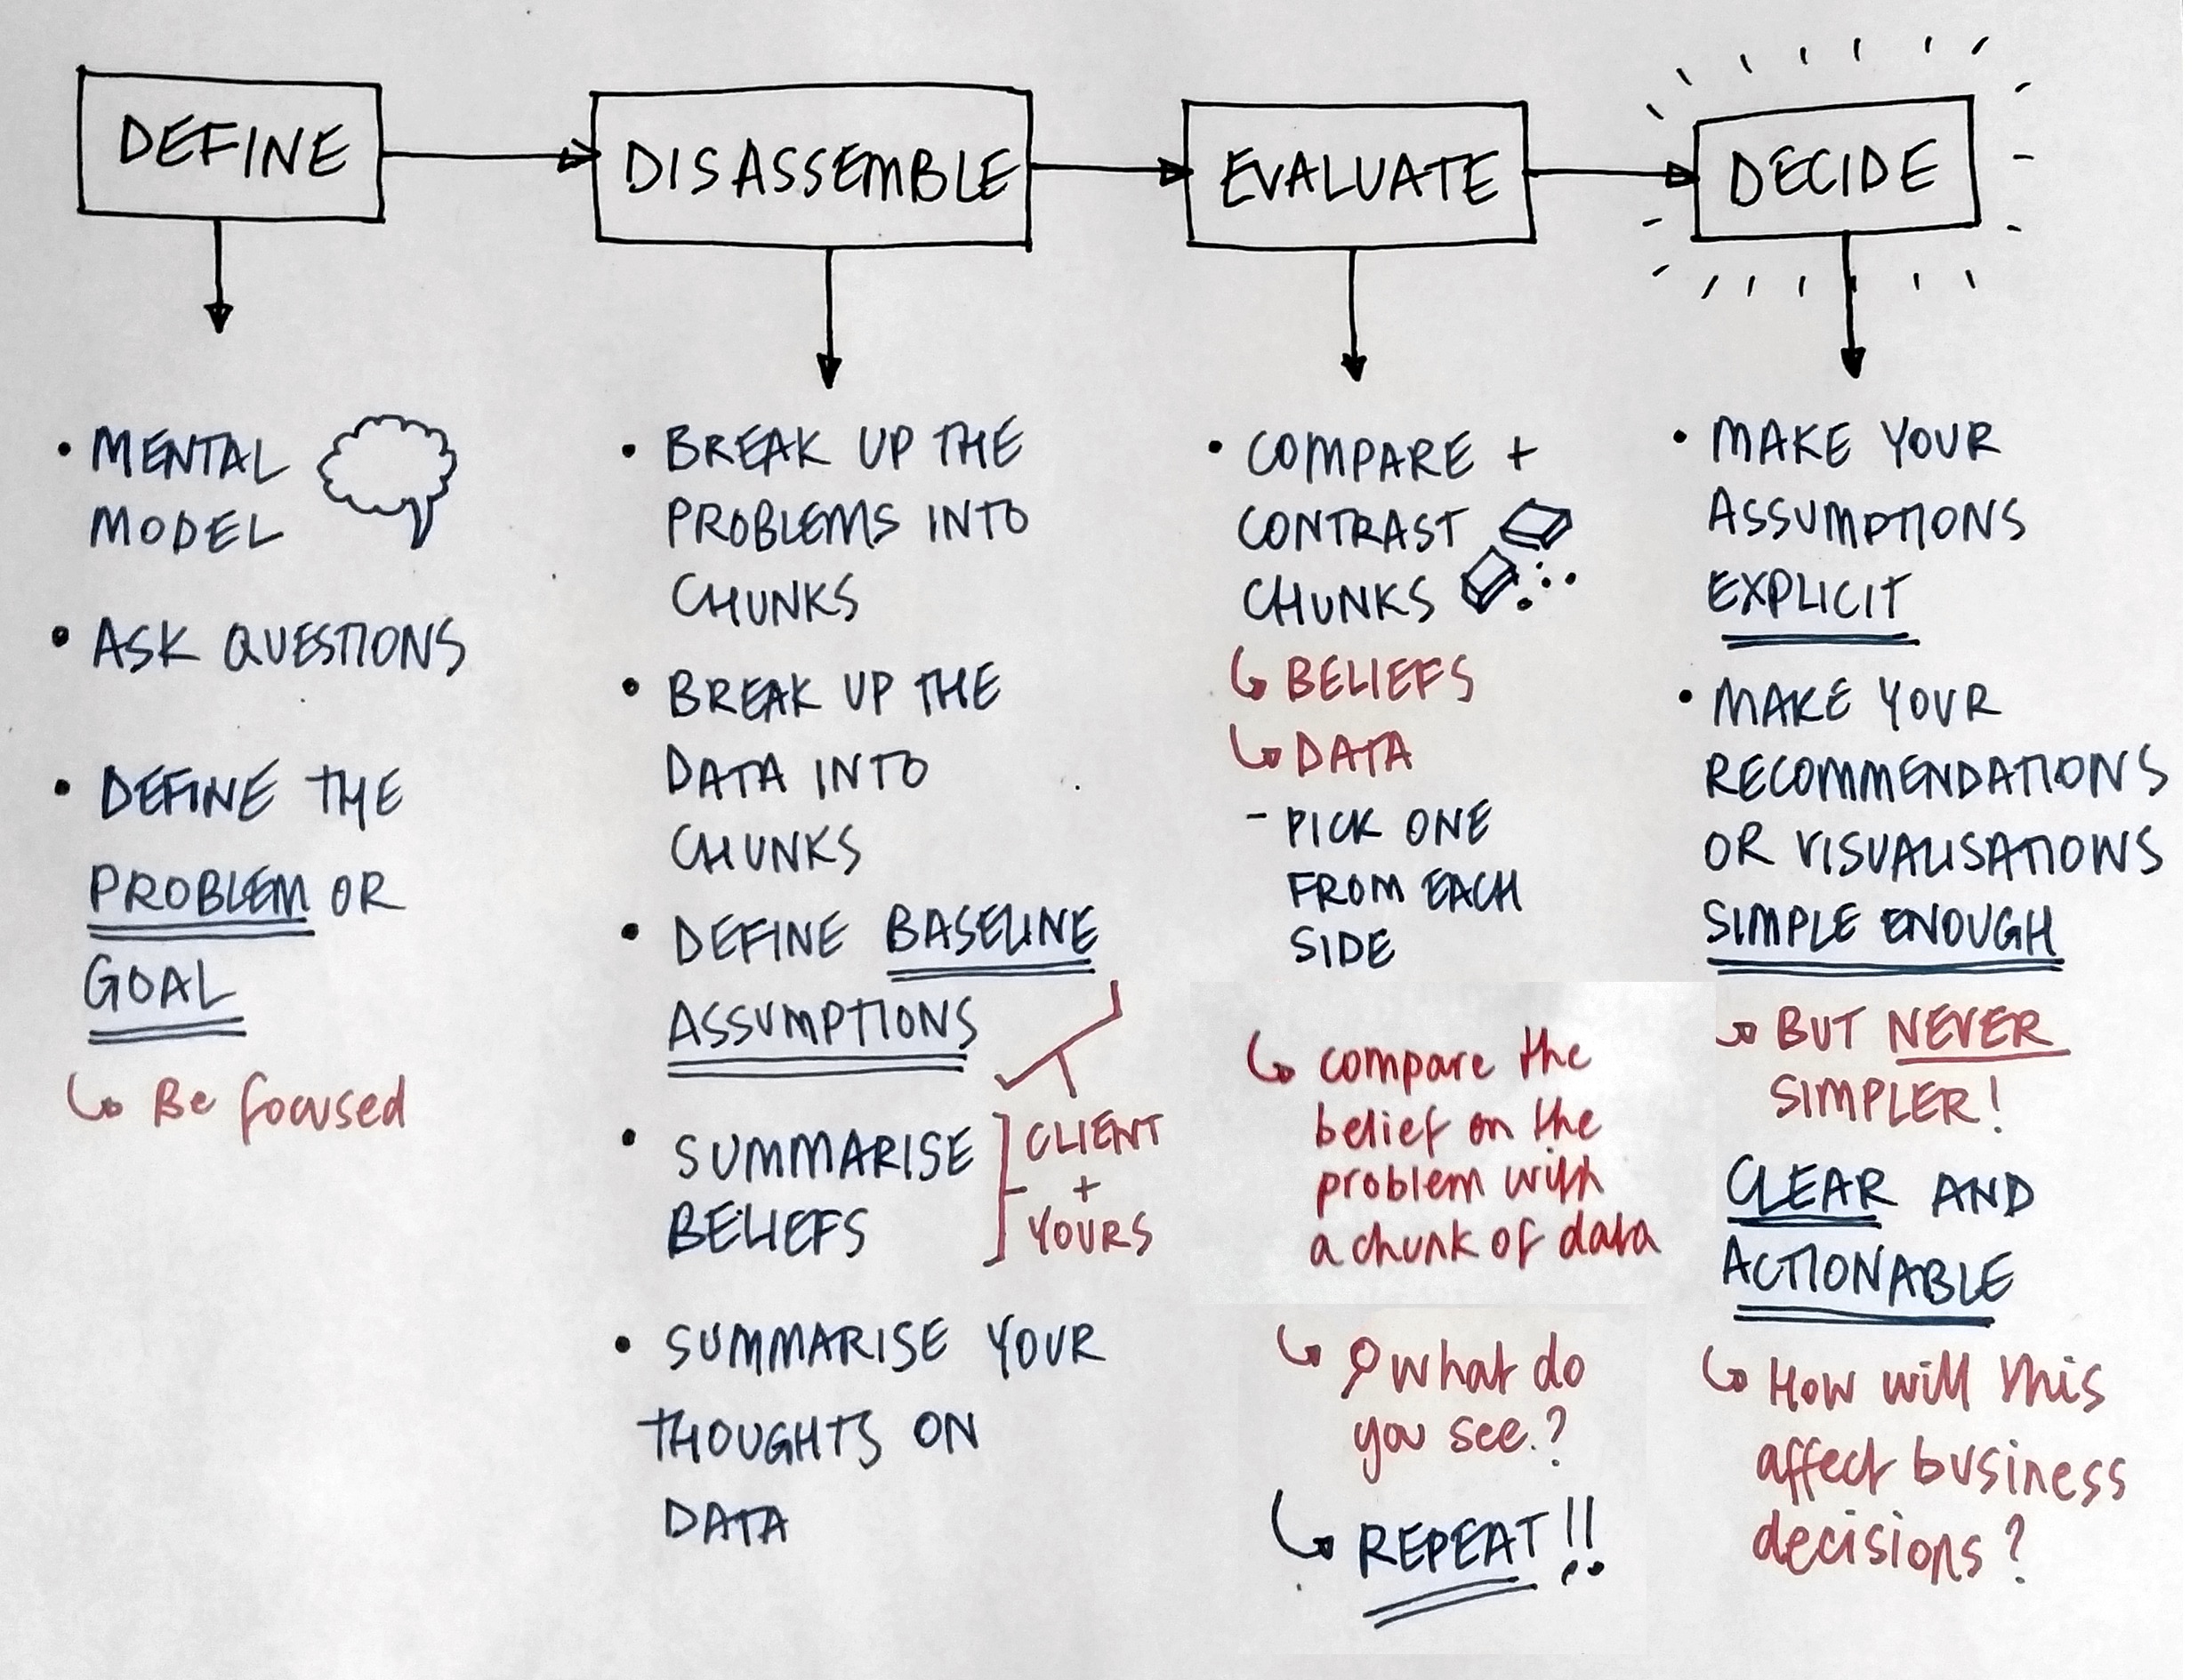 DEFINE
DISASSEMBLE
EVALUATE
DECIDE
• MENTAL
MODEL
• ASK QUESTIONS
• DEFINE THE
PROBLEM OR
GOAL
↳ Be focused
• BREAK UP THE
PROBLEMS INTO
CHUNKS
• BREAK UP THE
DATA INTO
CHUNKS
• DEFINE BASELINE
ASSUMPTIONS
• SUMMARISE
BELIEFS
CLIENT
+
YOURS
• SUMMARISE YOUR
THOUGHTS ON
DATA
• COMPARE +
CONTRAST
CHUNKS
↳ BELIEFS
↳ DATA
- PICK ONE
FROM EACH
SIDE
↳ compare the
belief on the
problem with
a chunk of data
↳ what do
you see.?
↳ REPEAT!!
• MAKE YOUR
ASSUMPTIONS
EXPLICIT
• MAKE YOUR
RECOMMENDATIONS
OR VISUALISATIONS
SIMPLE ENOUGH
↳ BUT NEVER
SIMPLER!
CLEAR AND
ACTIONABLE
↳ How will this
affect business
decisions?